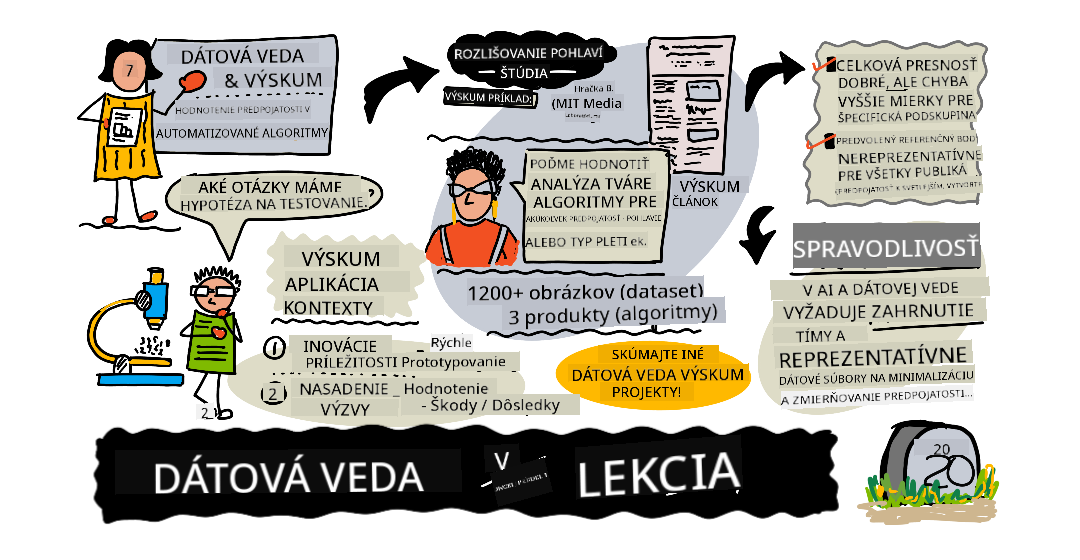 7
DÁTOVÁ VEDA
& VÝSKUM
HODNOTENIE PREDPOJATOSTI V
AUTOMATIZOVANÉ ALGORITMY
AKÉ OTÁZKY MÁME ?
HYPOTÉZA NA TESTOVANIE.
VÝSKUM
APLIKÁCIA
KONTEXTY
1 INOVÁCIE – Rýchle
PRÍLEŽITOSTI Prototypovanie
2 NASADENIE – Hodnotenie
VÝZVY - Škody / Dôsledky
2
ROZLIŠOVANIE POHLAVÍ
ŠTÚDIA
VÝSKUM PRÍKLAD:
Hračka B.
(MIT Media
VÝSKUM
ČLÁNOK
POĎME HODNOTIŤ
ANALÝZA TVÁRE
ALGORITMY PRE
AKÚKOĽVEK PREDPOJATOSŤ - POHLAVIE
ALEBO TYP PLETI ek.
1200+ obrázkov (dataset)
3 produkty (algoritmy)
SKÚMAJTE INÉ
DÁTOVÁ VEDA VÝSKUM
PROJEKTY!
CELKOVÁ PRESNOSŤ
DOBRÉ, ALE CHYBA
VYŠŠIE MIERKY PRE
ŠPECIFICKÁ PODSKUPINA
PREDVOLENÝ REFERENČNÝ BOD
NEREPREZENTATÍVNE
PRE VŠETKY PUBLIKÁ
(PREDPOJATOSŤ K SVETLEJŠÍM,
SPRAVODLIVOSŤ
V AI A DÁTOVEJ VEDE
VYŽADUJE ZAHRNUTIE
TÍMY A
REPREZENTATÍVNE
DÁTOVÉ SÚBORY NA MINIMALIZÁCIU
A ZMIERŇOVANIE PREDPOJATOSTI...
DÁTOVÁ VEDA V LEKCIA
20
20